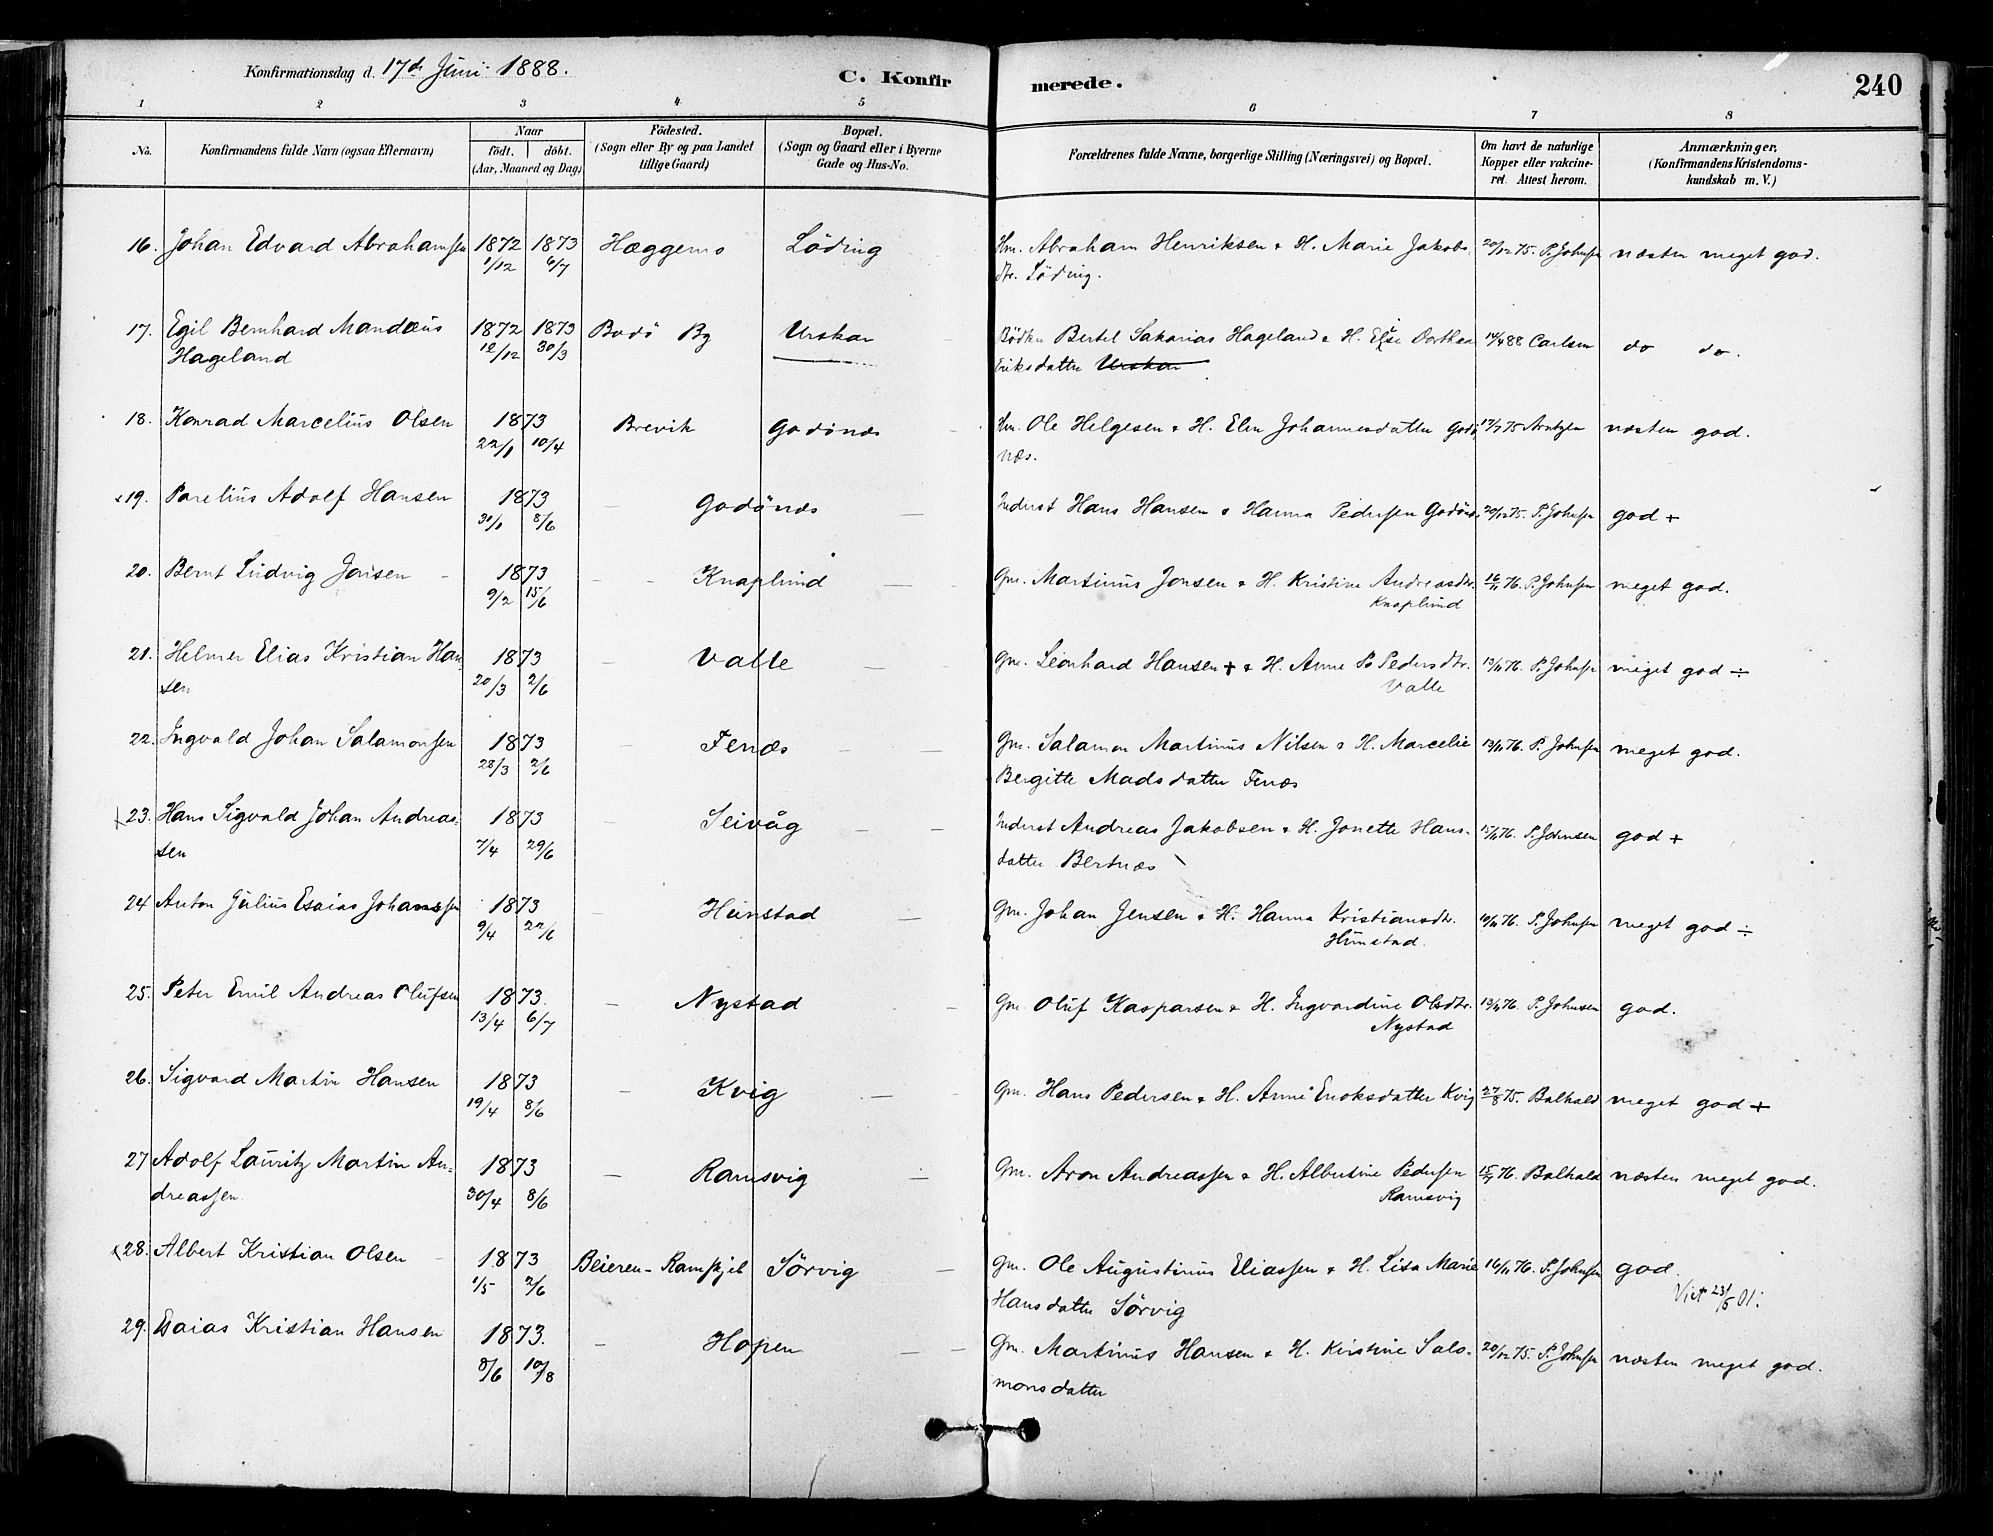 Konfirmationsdag d. 17de Juni 1888.
C. Konfirmerede.
240
1 2 3 4 5 6 7 8
No. Konfirmandens fulde Navn (ogsaa Efternavn) Naar födt. döbt. (Aar, Maaned og Dag) Födested. (Sogn eller By og paa Landet tillige Gaard) Bopæl. (Sogn og Gaard eller i Byerne Gade og Hus-No. Forældrenes fulde Navne, borgerlige Stilling (Næringsvei) og Bopæl. Om havt de naturlige Kopper eller vakcineret. Attest herom. Anmærkninger. (Konfirmandens Kristendomskundskab m. V.)
16. Johan Edvard Abrahamsen 1872 1/12 1873 6/7 Hæggemo Löding Hm. Abraham Henriksen & H. Marie Jakobs 20/12 75. P. Johnsen næsten meget god.
dtr. Löding.
17. Egil Bernhard Mandæus 1872 12/12 1873 30/3 Bodö By Urskar Bödker Bertel Sakarias Hageland & H. Else Dorthea 14/4 88 Carlsen do do.
Hageland Eriksdatter Urskar
18. Konrad Marcelius Olsen 1873 22/1 10/4 Brevik Godönæs Hm. Ole Helgesen & H. Elen Johannesdatter Godö 17/7 75 Arntzen næsten god.
næs.
x19. Parelius Adolf Hansen 1873 30/1 8/6 – Godönæs – Inderst Hans Hansen & Hanna Pedersen Godönæs 20/12 75. P. Johnsen god +
20. Bernt Ludvig Jonsen – 1873 9/2 15/6 – – Knaplund – – Gm. Martinus Jonsen & H. Kristine Andreasdtr. 16/11 76. P. Johnsen meget god.
Knaplund
21. Helmer Elias Kristian Han 1873 20/3 2/6 – Valle – – Gm. Leonhard Hansen + & H. Anne P. Pedersdtr. 13/11 76. P. Johnsen meget god ÷
sen Valle
22. Ingvald Johan Salamonsen 1873 28/3 2/6 – Fenæs – – Gm. Salamon Martinus Nilsen & H. Marcelie 13/11 76. P. Johnsen meget god.
Bergitte Madsdatter Fenæs
x23. Hans Sigvald Johan Andreas- 1873 7/4 29/6 – Seivåg – – Inderst Andreas Jakobsen & H. Jonette Hans- 15/11 76. P. Johnsen god +
sen datter Bertnæs
24 Anton Julius Esaias Johansen 1873 9/4 22/6 – Hunstad – Gm. Johan Jensen & H. Hanna Kristiansdtr. 10/11 76. P. Johnsen meget god ÷
Hunstad.
25. Peter Emil Andreas Olufsen 1873. 13/4 6/7 – Nystad – Gm. Oluf Kasparsen & H. Ingvardine Olsdtr. 13/11 76. P. Johnsen god.
Nystad
26. Sigvard Martin Hansen 1873 19/4 8/6 – Kvig – – Gm. Hans Pedersen & H. Anne Enoksdatter Kvig 27/8 75. Balhald meget god +
27 Adolf Lauritz Martin An- 1873 30/4 8/6 – Ramsvig – Gm. Aron Andreassen & H. Albertine Pedersen 15/7 76. Balhald næsten meget god.
dreassen. Ramsvig
x28. Albert Kristian Olsen – 1873 1/5 2/6 Beieren – Ramskjel Sörvig – Gm. Ole Augustinus Eliassen & H. Lisa Marie 16/11 76. P. Johnsen god.
Hansdatter Sörvig Viet 23/5 01.
29. Esaias Kristian Hansen 1873. 8/6 10/8 – Hopen – – Gm. Martinus Hansen & H. Kirstine Salo- 20/12 75. P. Johnsen næsten meget god.
monsdatter